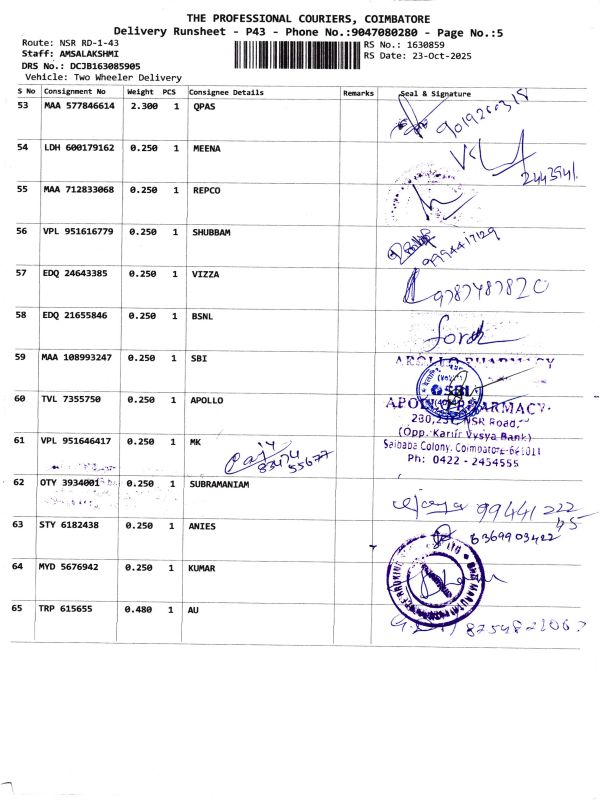 THE PROFESSIONAL COURIERS, COIMBATORE
Delivery Runsheet - P43 - Phone No.:9047080280 - Page No.:5
Route: NSR RD-1-43
RS No.: 1630859
Staff: AMSALAKSHMI
RS Date: 23-Oct-2025
DRS No.: DCJB163085905
Vehicle: Two Wheeler Delivery
S No Consignment No Weight PCS Consignee Details Remarks Seal & Signature
53 MAA 577846614 2.300 1 QPAS
54 LDH 600179162 0.250 1 MEENA
2443941.
55 MAA 712833068 0.250 1 REPCO
56 VPL 951616779 0.250 1 SHUBBAM
9994417129
57 EDQ 24643385 0.250 1 VIZZA
9787487820
58 EDQ 21655846 0.250 1 BSNL
59 MAA 108993247 0.250 1 SBI
APOLLO PHARMACY
SBI
60 TVL 7355750 0.250 1 APOLLO
APOLLO PHARMACY
230,231 NSR Road,
(Opp. Karur Vysya Bank)
61 VPL 951646417 0.250 1 MK
83474
55677
Saibaba Colony, Coimbatore-641011
Ph: 0422 - 2454555
62 OTY 3934001 0.250 1 SUBRAMANIAM
99441 222
45
63 STY 6182438 0.250 1 ANIES
6369903422
64 MYD 5676942 0.250 1 KUMAR
65 TRP 615655 0.480 1 AU